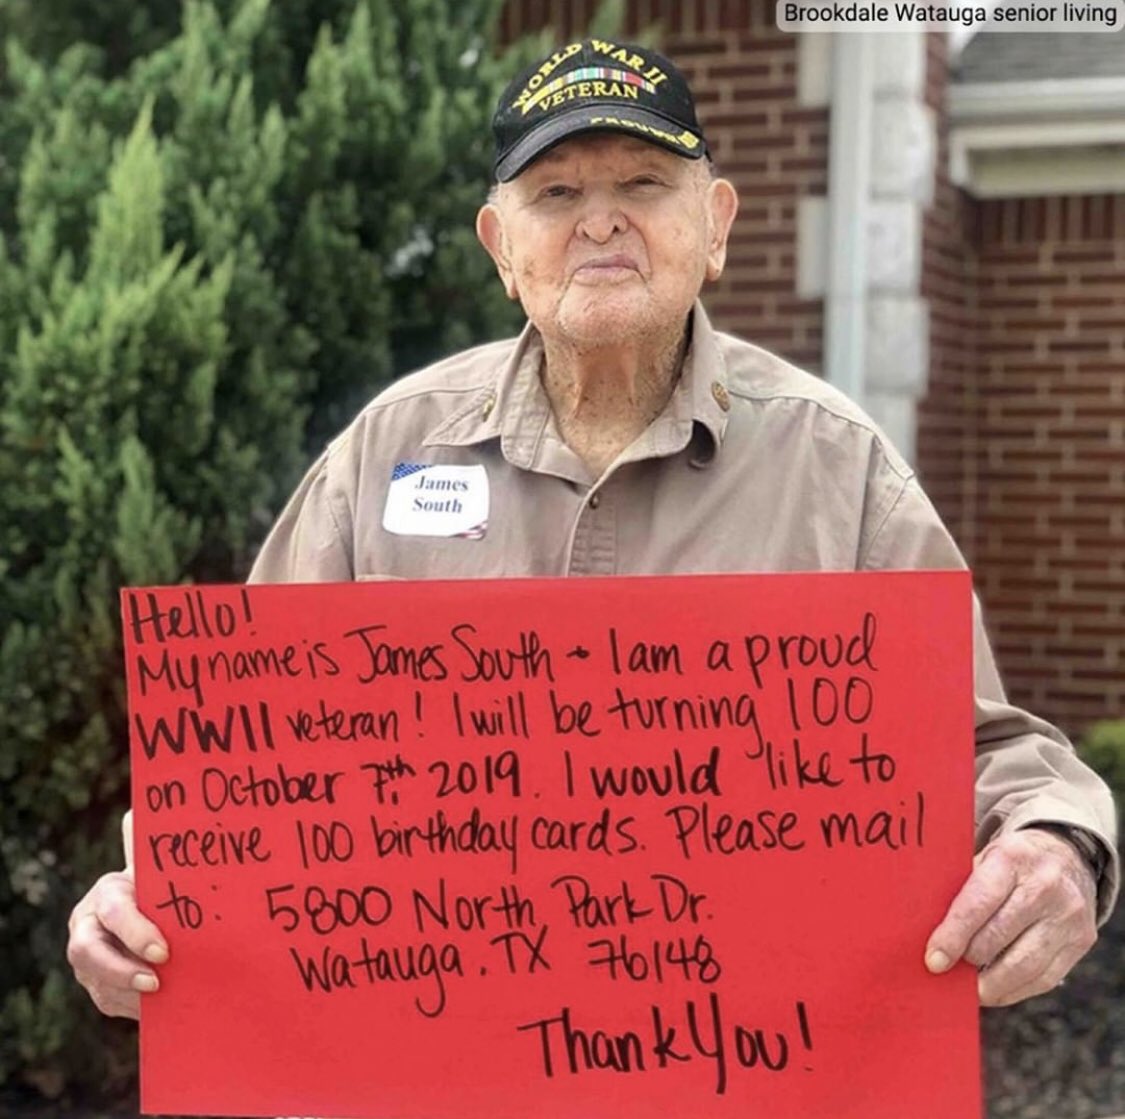 Brookdale Watauga senior living
WORLD WAR II
VETERAN
James
South
Hello!
My name is James South + I am a proud
WWII veteran! I will be turning 100
on October 7th, 2019. I would like to
receive 100 birthday cards. Please mail
to: 5800 North Park Dr.
Watauga, TX 76148
Thank You!